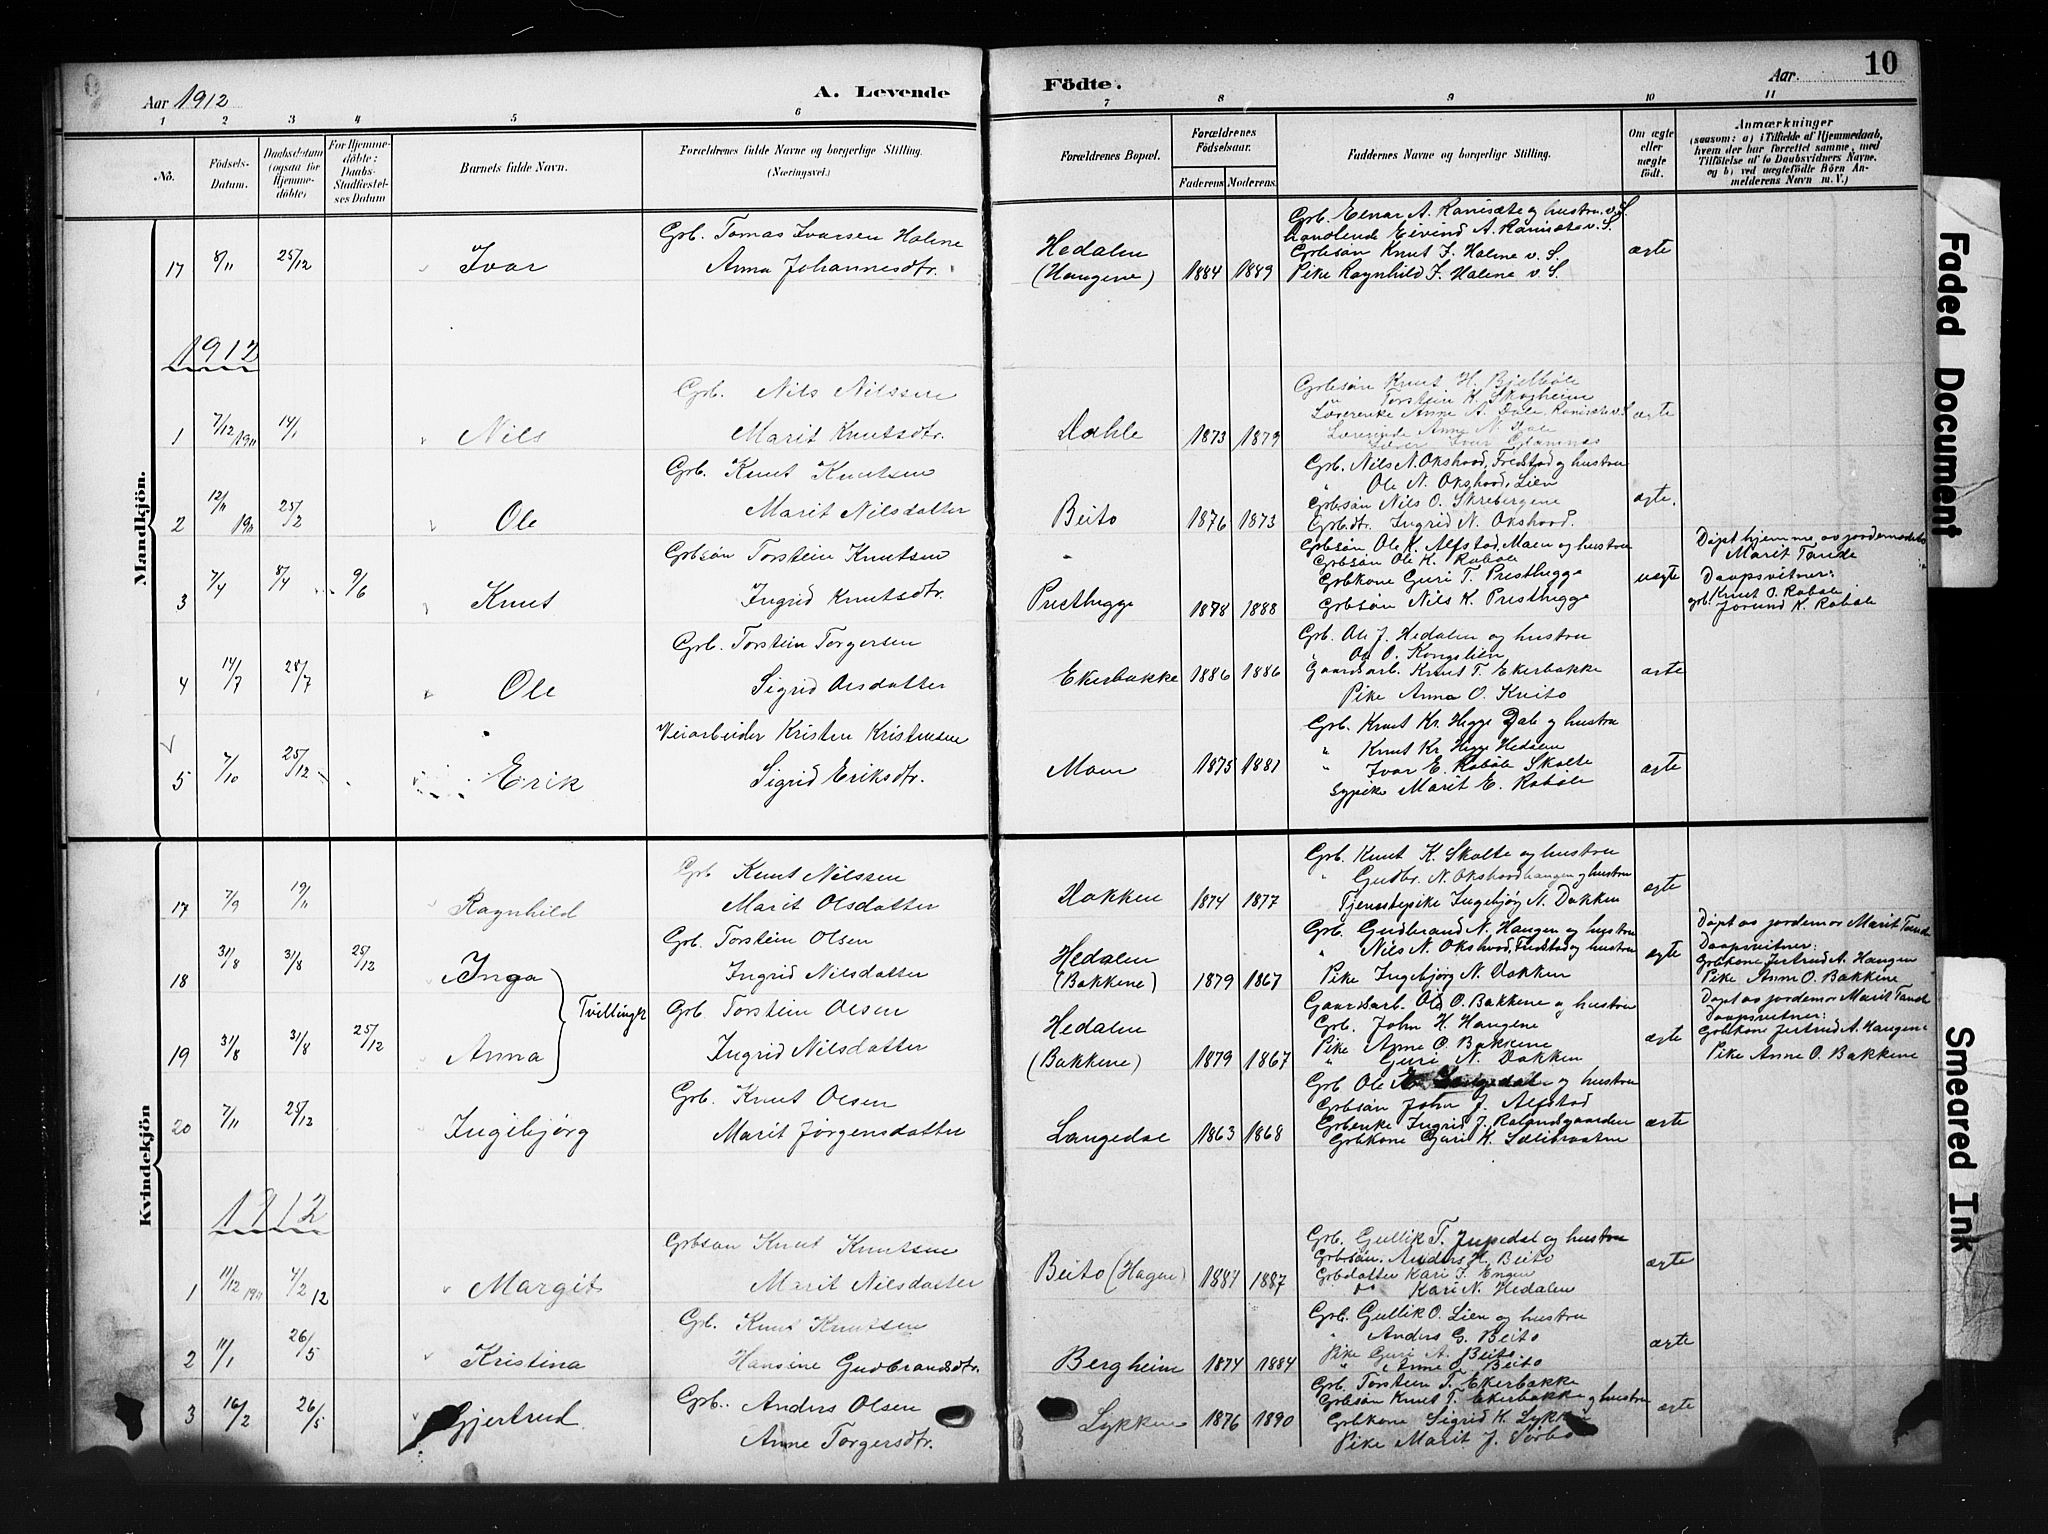 Aar 1912
A. Levende
Födte.
Aar.
10
1 2 3 4 5 6 7 8 9 10 11
No.
Födsels-Datum.
Daabsdatum (ogsaa for Hjemmedöbte)
For Hjemmedöbte: Daabs-Stadfæstelses Datum
Barnets fulde Navn.
Forældrenes fulde Navne og borgerlige Stilling.
(Næringsvei.)
Forældrenes Bopæl.
Forældrenes Födselsaar.
Faderens. Moderens.
Faddernes Navne og borgerlige Stilling.
Om ægte eller uægte födt.
Anmærkninger
(saasom: a) i Tilfælde af Hjemmedaab, hvem der har forrettet samme, med Tilföielse af to Daabsvidners Navne, og b) ved uægtefödte Börn Anmelderens Navn m. V.)
Mandkjön.
17 8/11 25/12 Ivar
Grb. Tomas Ivarsen Halme
Anna Johannesdtr.
Hedalen
(Haugene) 1884 1889
Grb. Einar A. Ranisæte og hustru. v. S.
handlende Eivind A. Ranisæte v. S.
Grbsøn Knut I. Halme v. S.
Pike Ragnhild I. Halme v. S.
ægte
1912
1 7/12 1911 14/1 Nils
Grb. Nils Nilssen
Marit Knutsdtr.
Dahle 1873 1879
Grbsøn Knut H. Bjelbøle
" Torstein K. Skogheim
Lærerenke Anne A. Dale, Ranisæte v. S
Lærerinde Anne N. Dale
Lærer Ivar
ægte
2 12/11 1911 25/2 Ole
Grb. Knut Knutsen
Marit Nilsdatter
Beito 1876 1873
Grb. Nils N. Okshovd, Fredstad og hustru
" Ole N. Okshovd, Lien
Grbsøn Nils O. Skrebergene
Grbdtr. Ingrid N. Okshovd.
ægte.
3 7/4 8/4 9/6 Knut
Grbsøn Torstein Knutsen
Ingrid Knutsdtr.
Presthegge 1878 1888
Grbsøn Ole K. Alfstad, Moen og hustru
Grbsøn Ole K. Robøle
Grbkone Guri T. Presthegge
Grbsøn Nils K. Presthegge
uægte
Døpt hjemme av jordemoder
Marit Tande
Daapsvitner:
grb. Knut O. Robøle
Jorund K. Robøle
4 14/7 28/7 Ole
Grb. Torstein Torgersen
Sigrid Olsdatter
Ekerbakke 1886 1886
Grb. Ole J. Hedalen og hustru
" Ole O. Kongslien
Gaardsarb. Knut T. Ekerbakke
Pike Anna O. Kvito
ægte
5 7/10 25/12 Erik
Veiarbeider Kristen Kristensen
Sigrid Eriksdtr.
Moen 1875 1881
Grb. Knut Kr. Hegge Dale og hustru
" Knut Kr. Hegge Hedalen
" Ivar E. Robøle Skolte
Sypike Marit E. Robøle
ægte
Kvindekjön
17 7/9 19/11 Ragnhild
Grb Knut Nilssen
Marit Olsdatter
Dokken 1874 1877
Grb. Knut K. Skolte og hustru
" Gudbr. N. Okshovdhaugen og hustru
Tjenestepike Ingebjørg N. Dokken
ægte
18 31/8 31/8 25/12 Inga
Grb. Torstein Olsen
Ingrid Nilsdatter
Hedalen
(Bakkene) 1879 1867
Grb. Gudbrand N. Haugen og hustru
" Nils N. Okshovd, Fredstad og hustru
Pike Ingebjørg N. Dokken
ægte
Døpt av jordemor Marit Tande
Daapsvitner:
Grbkone Jertrud A. Haugen
Pike Anne O. Bakkene
Tvillinger
19 31/8 31/8 25/12 Anna
Grb. Torstein Olsen
Ingrid Nilsdatter
Hedalen
(Bakkene) 1879 1867
Gaardsarb. Ole O. Bakkene og hustru
Grb. John H. Haugene
Pike Anne O. Bakkene
" Guri N. Dokken
ægte
Døpt av jordemor Marit Tande
Daapsvitner:
Grbkone Jertrud A. Haugene
Pike Anne O. Bakkene
20 7/11 25/12 Ingebjørg
Grb. Knut Olsen
Marit Jørgensdatter
Langedal 1863 1868
Grb Ole Langedal og hustru
Grbsøn John J. Alfstad
Grbenke Ingrid J. Rolandsgaarden
Grbkone Guri K. Sælibraaten
ægte
1912
1 11/12 1911 4/2 12 Margit
Grbsøn Knut Knutsen
Marit Nilsdatter
Beito (Hagen) 1884 1887
Grb. Gullik T. Jupedal og hustru
Grbsøn. Anders H. Beito
Grbdatter Kari T. Engen
do Kari N. Hedalen
ægte
2 11/1 26/5 Kristina
Grb. Knut Knutsen
Hansine Gudbrandsdtr.
Bergheim 1874 1884
Grb. Gullik O. Lien og hustru
" Anders G. Beito
Pike Guri A. Beito
" Anne O. Beito
ægte
3 16/2 26/5 Gjertrud
Grb. Anders Olsen
Anne Torgersdtr.
Lykken 1876 1890
Grb. Torstein T. Ekerbakke
Grbsøn Knut T. Ekerbakke og hustru
Grbkone Sigrid K. Lykken
Pike Marit J. Sørbo
ægte
Faded Document
Smeared Ink